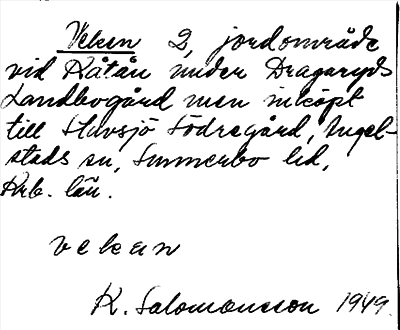 Veken 2, jordområde
vid Råtån under Dragaryds
Landbogård men inköpt
till Stuvsjö Södregård, Angel-
stads sn, Sunnerbo hd,
Krb. län.
vekan
K. Salomonsson 1949.